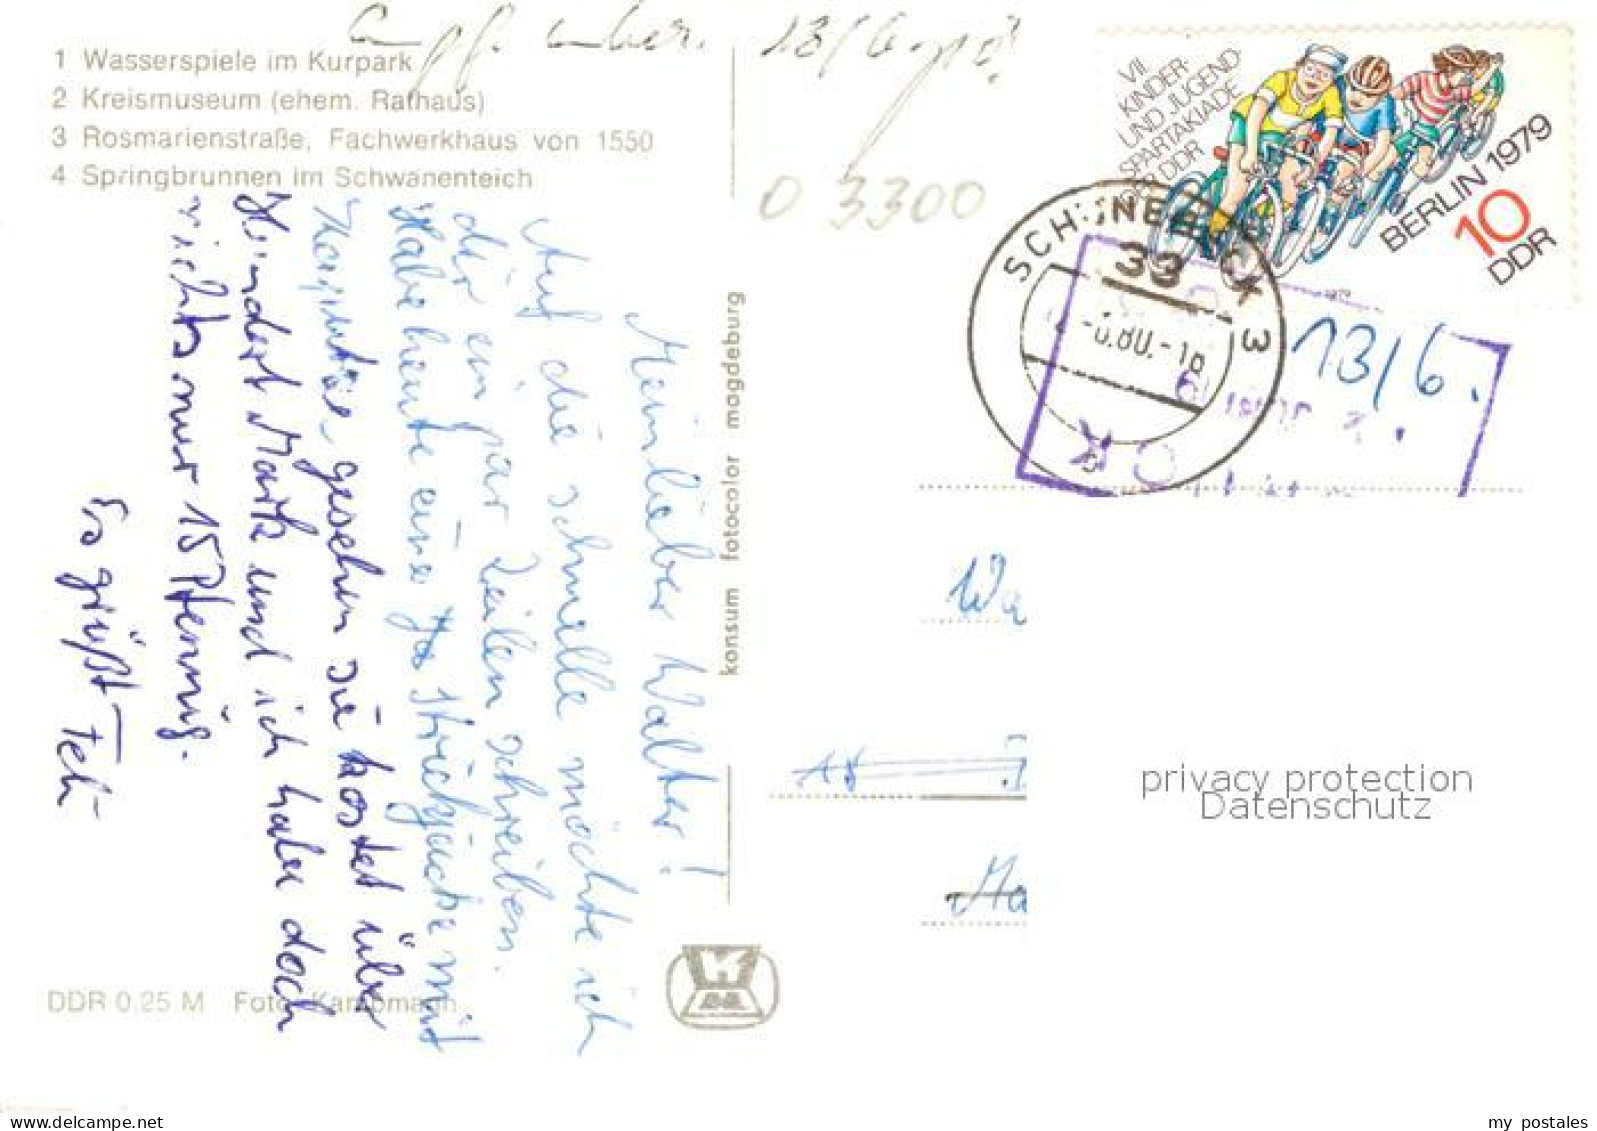 1 Wasserspiele im Kurpark
2 Kreismuseum (ehem. Rathaus)
3 Rosmarienstraße, Fachwerkhaus von 1550
4 Springbrunnen im Schwanenteich
13/6.
0 3300
VII
KINDER-
UND JUGEND-
SPARTAKIADE
DER DDR
BERLIN 1979
10
DDR
33
3
13/6.
Mein lieber Walter!
Auf die schnelle möchte ich
dir ein par Zeilen schreiben.
Habe heute eine Strickjacke mit
gesehen sie kostet über
Hundert Mark und ich habe doch
nichts nur 15 Pfennig.
Es grüßt
konsum fotocolor magdeburg
Wa
Ma
DDR 0,25 M Foto: Kampmann
privacy protection
Datenschutz
my postales